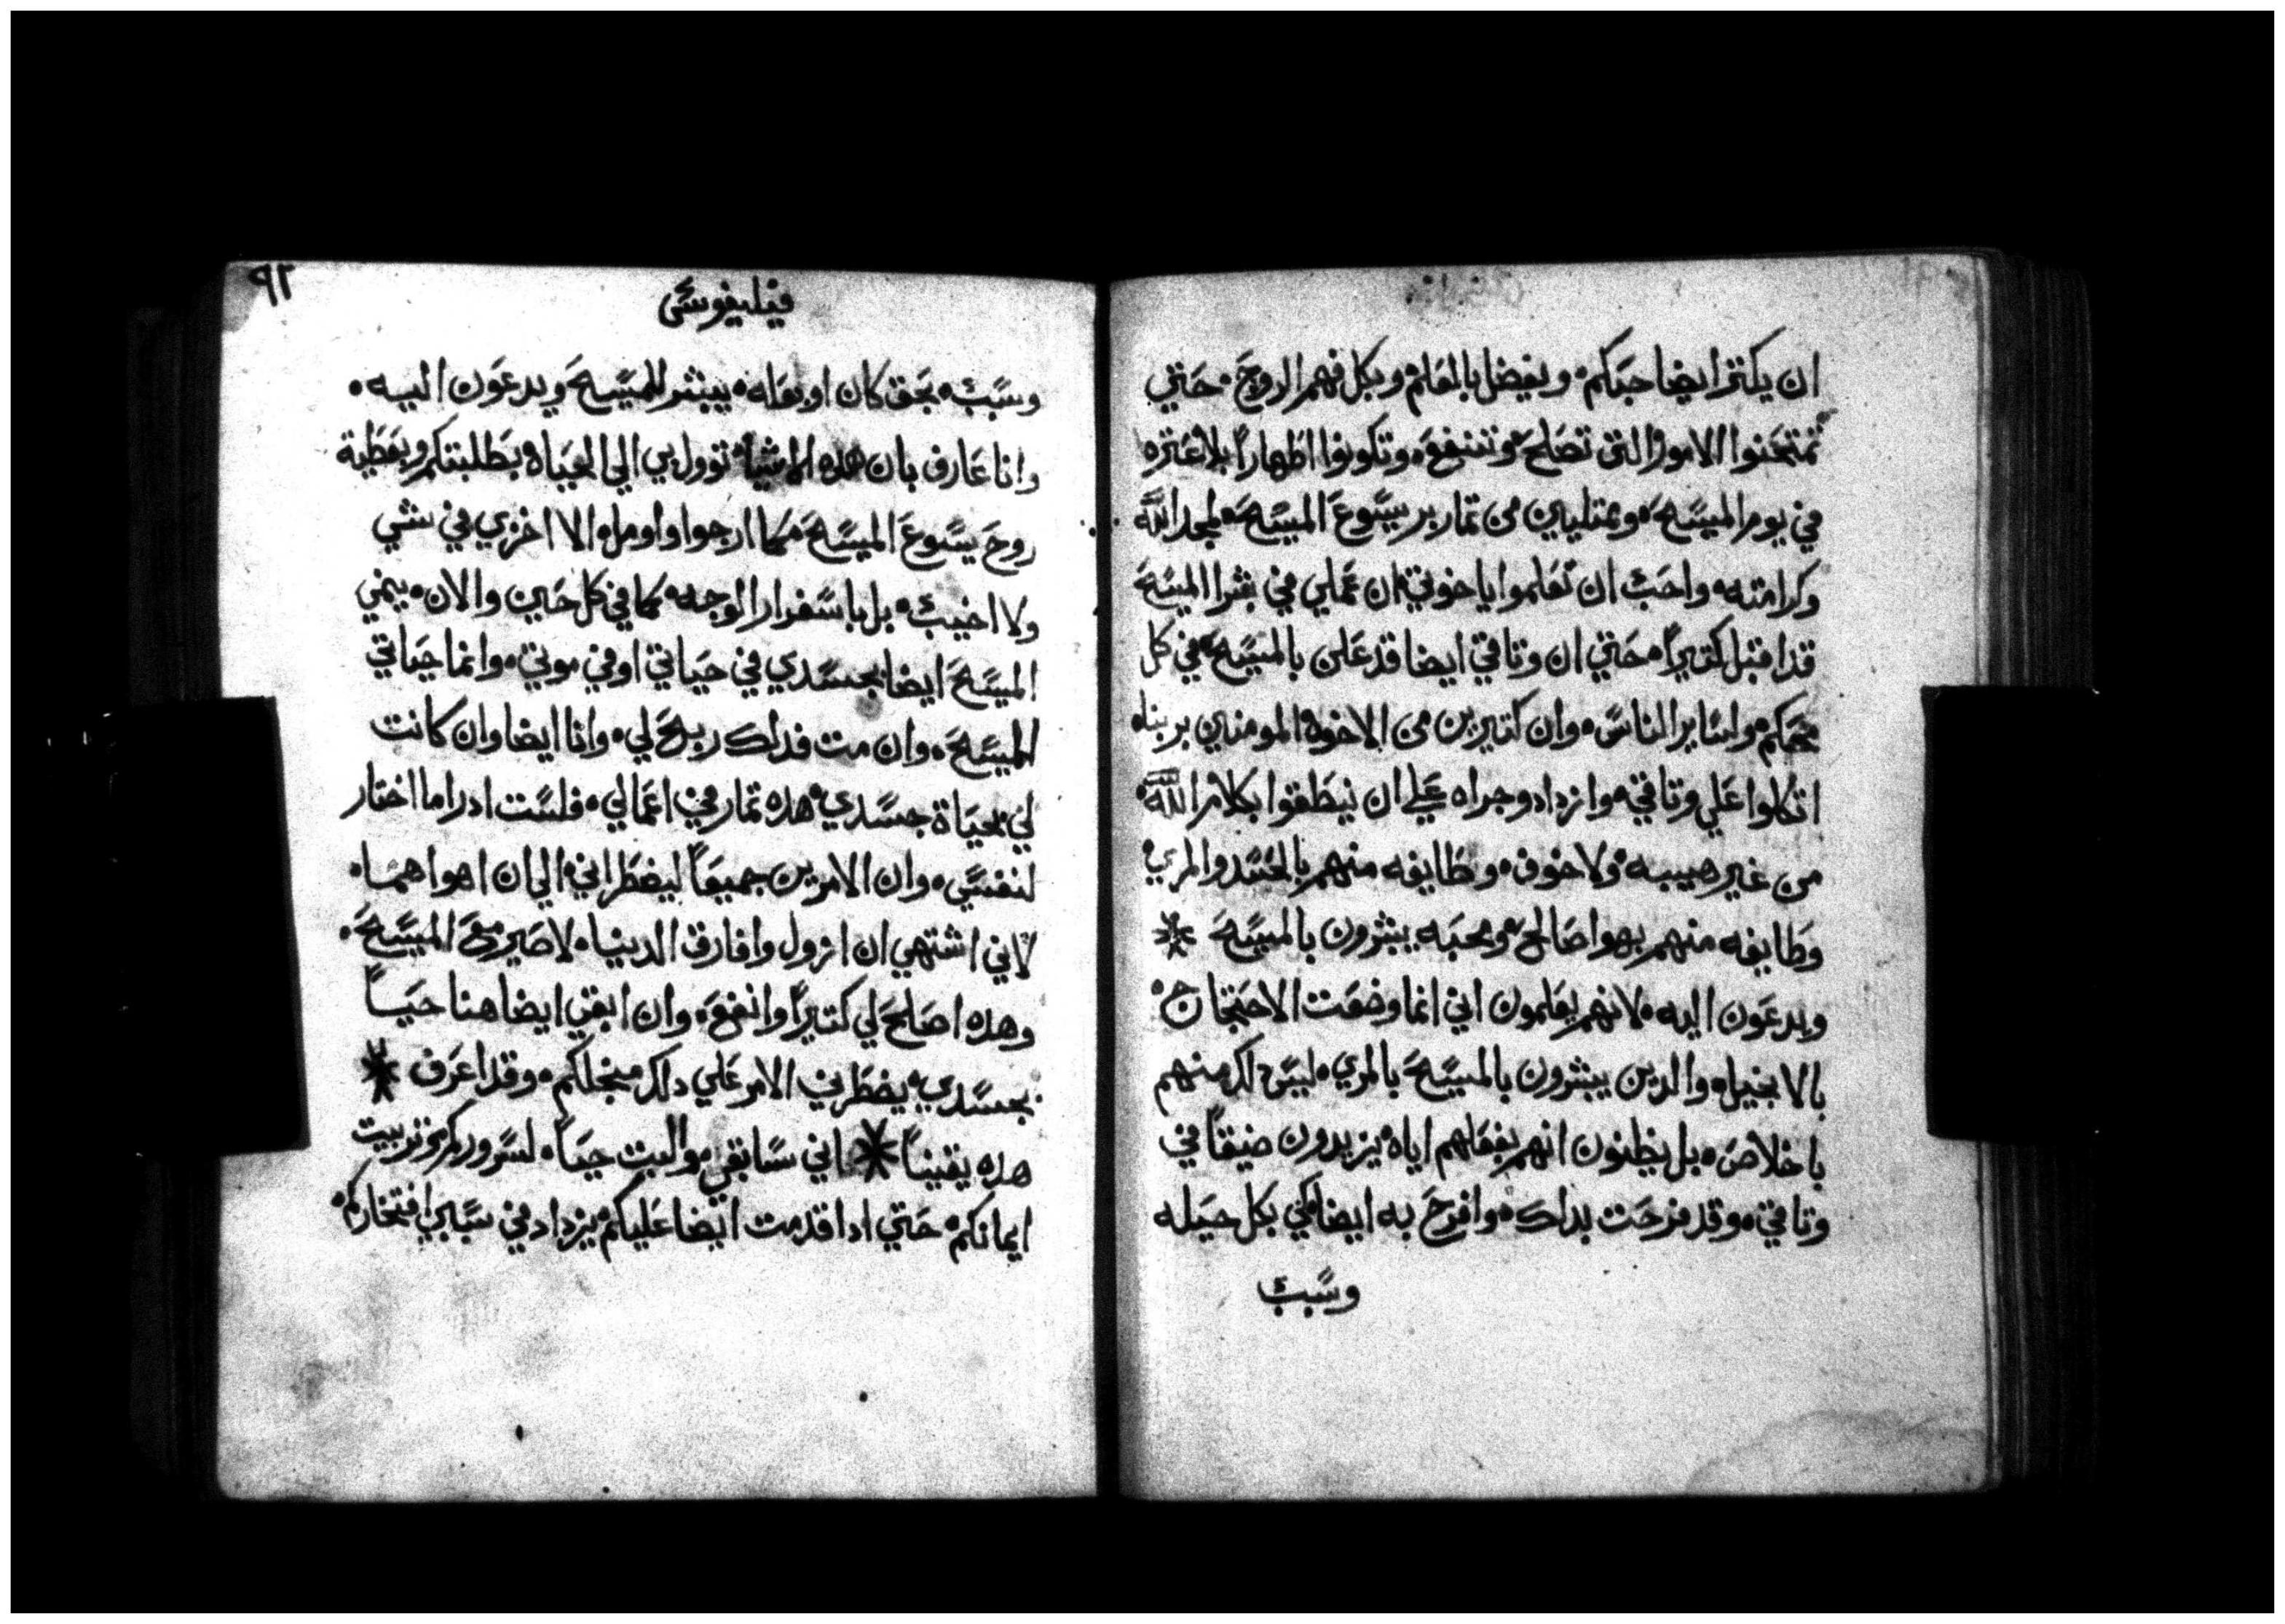 ان يكتر ايضا حبكم، ويفضل بالعلم وبكل فهم الروح، حتي
تمتحنوا الامور التي تصلح وتنفع، وتكونوا اطهاراً بلا عتره
في يوم المسيح، وممتليين من تمار بر يسوع المسيح، لمجد الله
وكرامته، واحب ان تعلموا ياخوتي، ان عملي في بشرا المسيح
قد اقبل كتيراً، حتي ان وتاقي ايضا قد علن بالمسيح، في كل
محكم، ولساير الناس، وان كتيرين من الاخوه المومنين بربنا،
اتكلوا علي وتاقي، وازدادو جراه علي ان ينطقوا بكلام الله،
من غير هيبه، ولا خوف، وطايفه منهم بالحسد والمري،
وطايفه منهم بهوا صالح، ومحبه يبشرون بالمسيح
ويدعون اليه، لانهم يعلمون اني انما وضعت الاحتجاج،
بالانجيل، والدين يبشرون بالمسيح بالمري، ليس دلك منهم
باخلاص، بل يظنون انهم بفعلهم اياه، يزيدون ضيقاً في
وتاقي، وقد فرحت بداك، وافرح به ايضا، لكي بكل حيله
وسبب
٩٢
فيليفوسي
وسبب، بحق كان او بعله، يبشر المسيح ويدعون اليه،
وانا عارف بان هده الاشيا، توول بي الي الحياه بطلبتكم وبعطية
روح يسوع المسيح، كما ارجوا واومل، الا اخزي في شي
ولا اخيب، بل باسفرار الوجه، كما في كل حين، والان، ينمي
المسيح ايضا بجسدي في حياتي او في موتي، وانما حياتي
المسيح، وان مت فدلك ربح لي، وانا ايضا وان كانت
لي بحياة جسدي، هده تمار في اعمالي، فلست ادرا ما اختار
لنفسي، وان الامرين جميعاً ليضطراني، الي ان اهواهما،
لاني اشتهي ان ازول وافارق الدنيا، لاصير مع المسيح،
وهده اصلح لي كتيراً وانفع، وان ابقي ايضا هنا حياً
بجسدي، يضطرني الامر علي دلك من جلكم، وقد اعرف
هده يقيناً اني سابقي، والبت حياً، لسروركم وتربيت
ايمانكم، حتي ادا قدمت ايضا عليكم، يزداد في سببي افتخاركم،